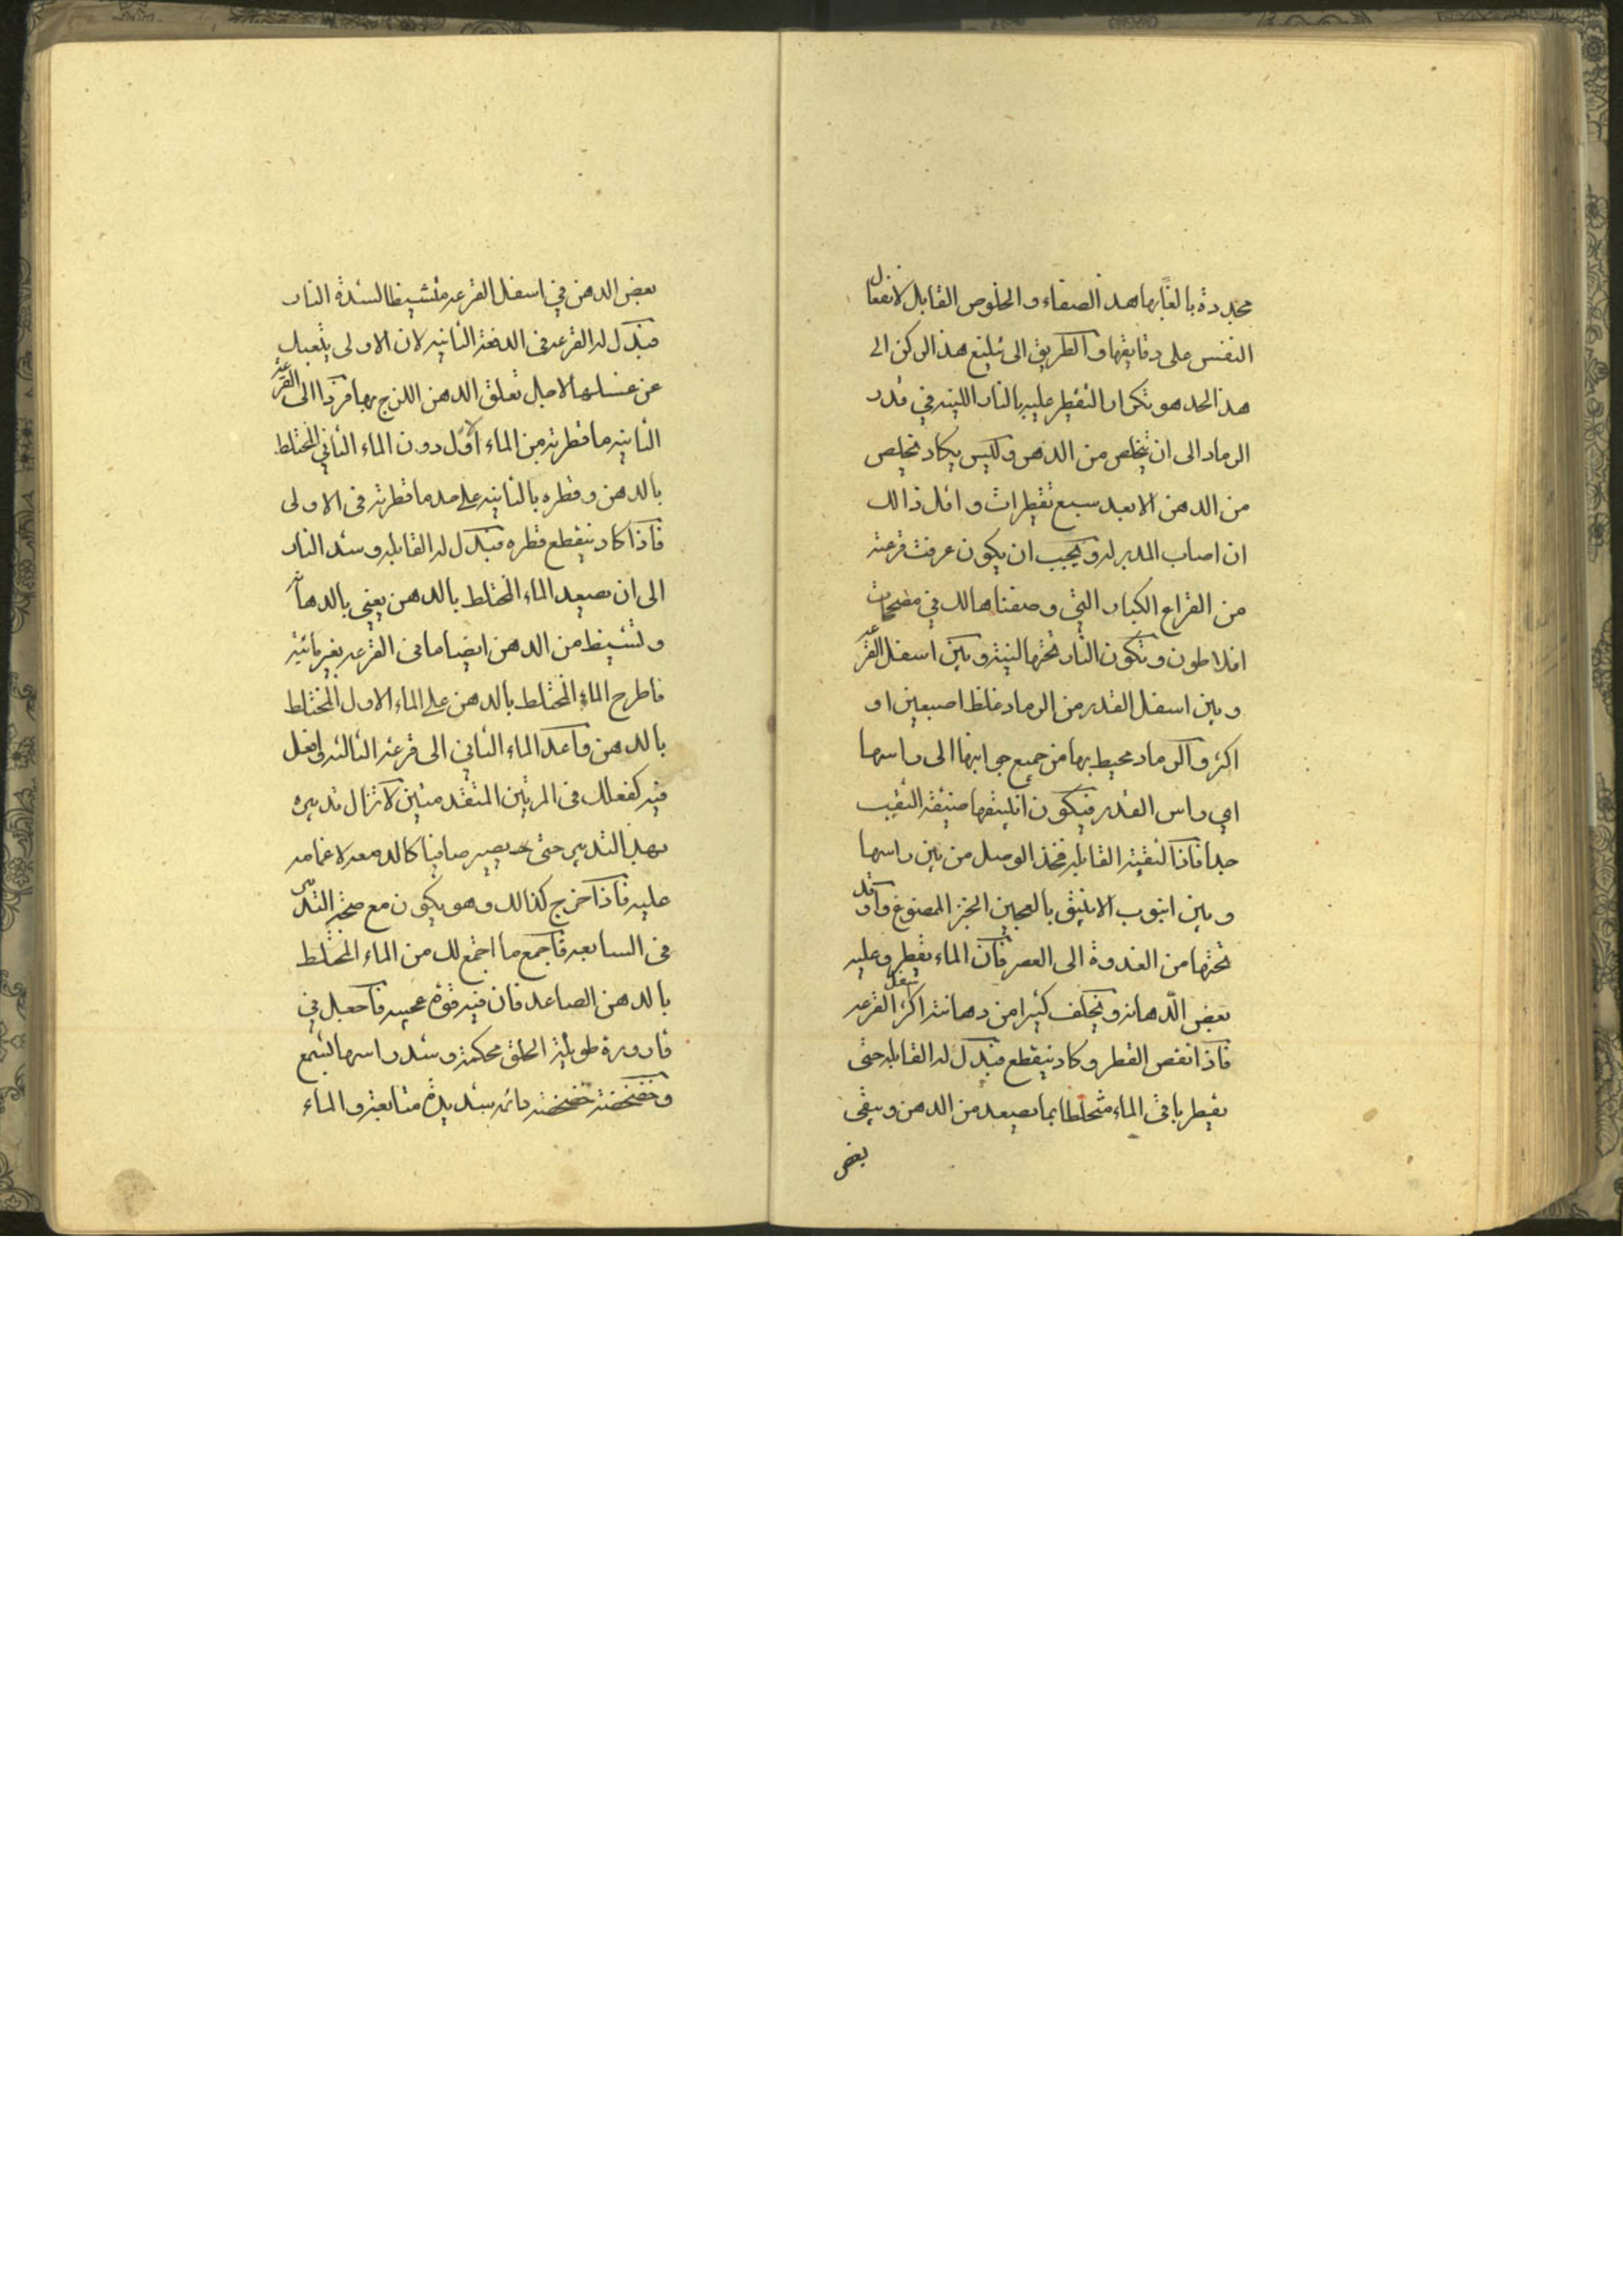 مجددة بالغا بها هذا الصفاء والخلوص القابل لانفعال
النفس على دقايقها والطريق الى تبليغ هذا الركن الى
هذا الحد هو تكرار التقطير عليه بالنار اللينه في قدر
الرماد الى ان تخلص من الدهن وليس يكاد تخلص
من الدهن الا بعد سبع تقطيرات واقل ذالك
ان اصاب المدبر له ويجب ان يكون عرفت قرعته
من القراع الكبار التي وصفناها لك في مصححات
افلاطون وتكون النار تحتها لينة وبين اسفل القرعه
وبين اسفل القدر من الرماد غلظ اصبعين او
اكثر والرماد محيط بها من جميع جوانبها الى راسها
اي راس القدر فيكون انبيقها ضيقة الثقب
جدا فاذا لقيته القابله فخذ الوصل من بين راسها
وبين انبوب الانبيق بالعجين الخبز المصنوع واوقد
تحتها من الغدوة الى العصر فان الماء يقطر وعليه
بعض الدهانه ويتخلف كثيرا من دهانته اكثر اسفل القرعه
فاذا نقص القطر وكاد ينقطع فبدل له القابله حتى
يقطر باقي الماء مختلطا بما يصعد من الدهن ويبقى
بعض
بعض الدهن في اسفل القرعه متشيطا لشدة النار
فبدل له القرعه في الدفعة الثانيه لان الاولى يتعبك
عن غسلها لاجل تعلق الدهن اللزج بها فرد الى القرعه
الثانيه ما قطرته من الماء اولا دون الماء الثاني المختلط
بالدهن وقطره بالثانيه على حد ما قطرته في الاولى
فاذا كاد ينقطع قطره فبدل له القابله وشد النار
الى ان يصعد الماء المختلط بالدهن يعني بالدهانه
وتشيط من الدهن ايضا ما في القرعه بغير مائيته
فاطرح الماء المختلط بالدهن على الماء الاول المختلط
بالدهن واعد الماء الثاني الى قرعته الثالثه وافعل
فيه كفعلك في المرتين المتقدمتين لا تزال تدبيره
بهذا التدبير حتى يصير صافيا كالدمعه لا غمامه
عليه فاذا خرج كذالك وهو يكون مع صحة التدبير
في السابعه فاجمع ما اجتمع لك من الماء المختلط
بالدهن الصاعد فان فيه قوة عجيبه فاجعل في
قارورة طويلة الحلق محكمة وشد راسها بشمع
وخضخضه خضخضه دائمه شديدة متتابعة والماء